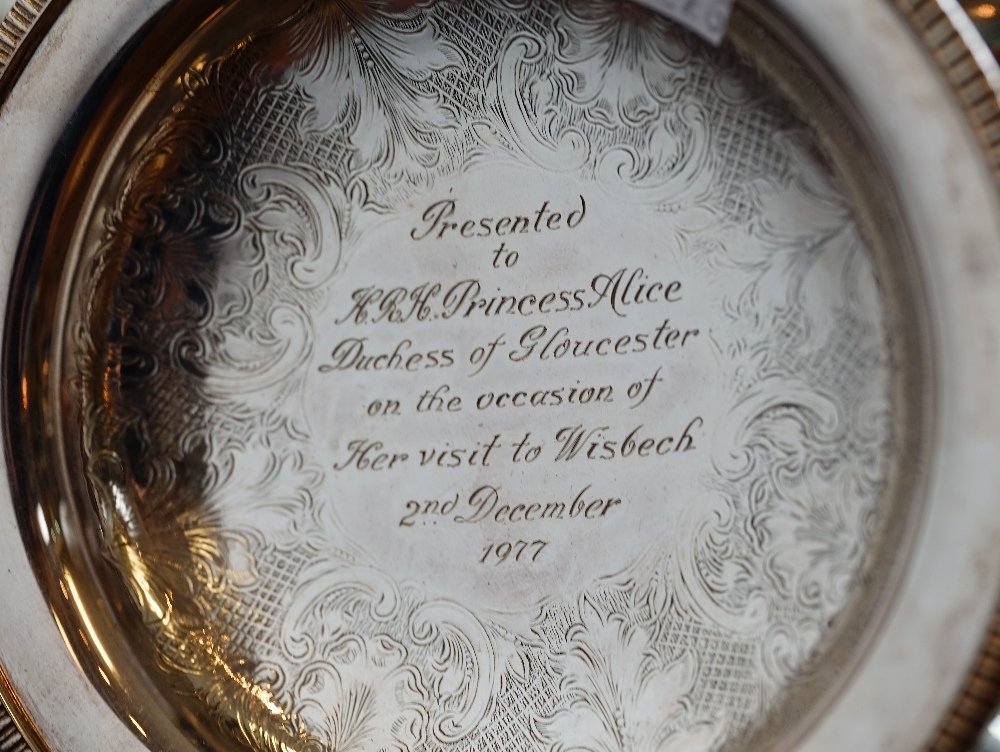 Presented
to
H.R.H. Princess Alice
Duchess of Gloucester
on the occasion of
Her visit to Wisbech
2nd December
1977